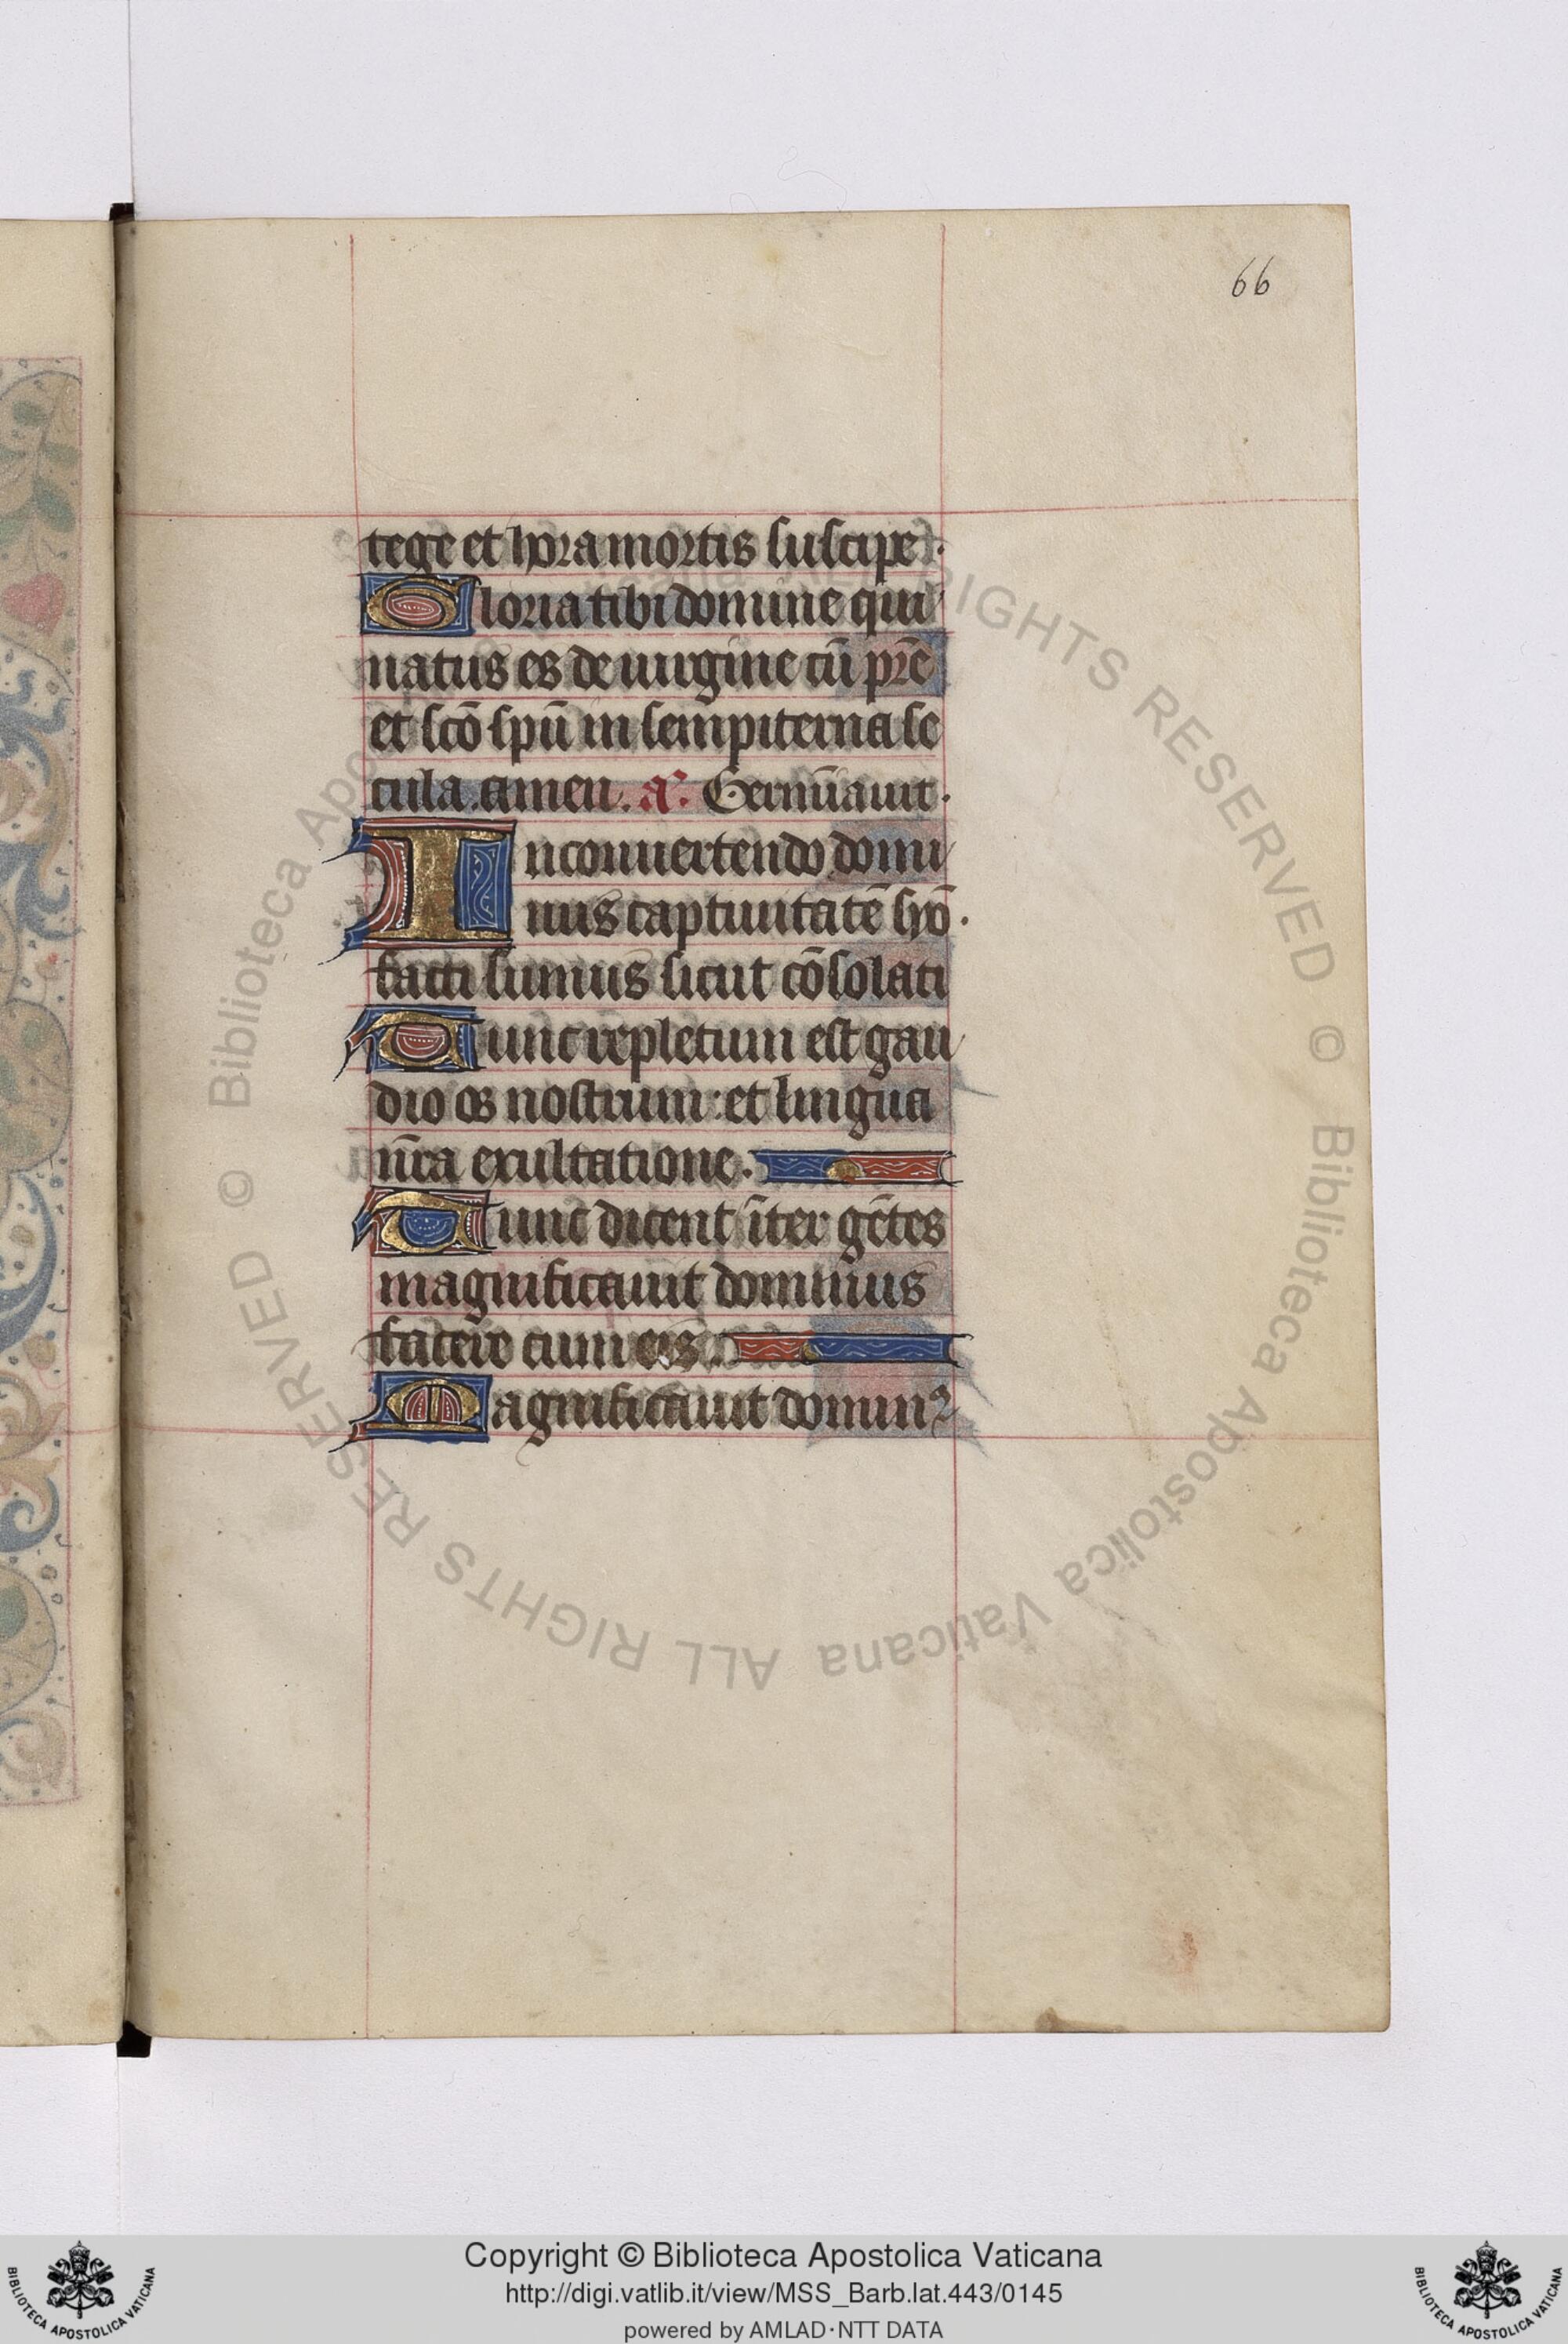 66
tege et hora mortis suscipe.
Gloria tibi domine qui
natus es de uirgine cū pr̄e
et scō spū in sempiterna se
cula. amen. aͣ. Germīauit.
In conuertendo domi
nus captiuitatē syō.
facti sumus sicut cōsolati
Tunc repletum est gau
dio os nostrum: et lingua
nr̄a exultatione.
Tunc dicent īter gētes
magnificauit dominus
facere cum eis.
Magnificauit dominꝰ
© Biblioteca Apostolica Vaticana ALL RIGHTS RESERVED © Biblioteca Apostolica Vaticana ALL RIGHTS RESERVED
Copyright © Biblioteca Apostolica Vaticana
http://digi.vatlib.it/view/MSS_Barb.lat.443/0145
powered by AMLAD·NTT DATA
BIBLIOTECA APOSTOLICA VATICANA
BIBLIOTECA APOSTOLICA VATICANA